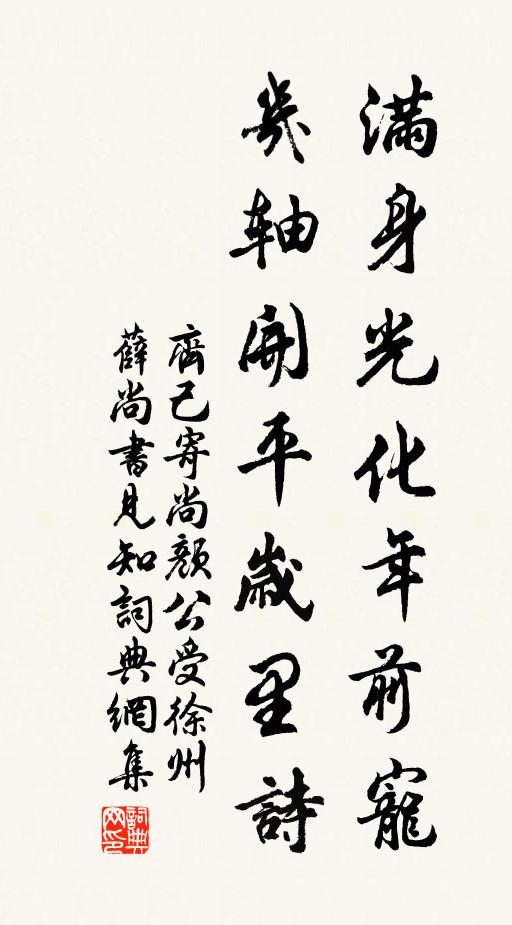 滿身光化年前寵
幾軸開平歲里詩
齊己寄尚顏公受徐州
薛尚書見知詞典網集
詞典网印